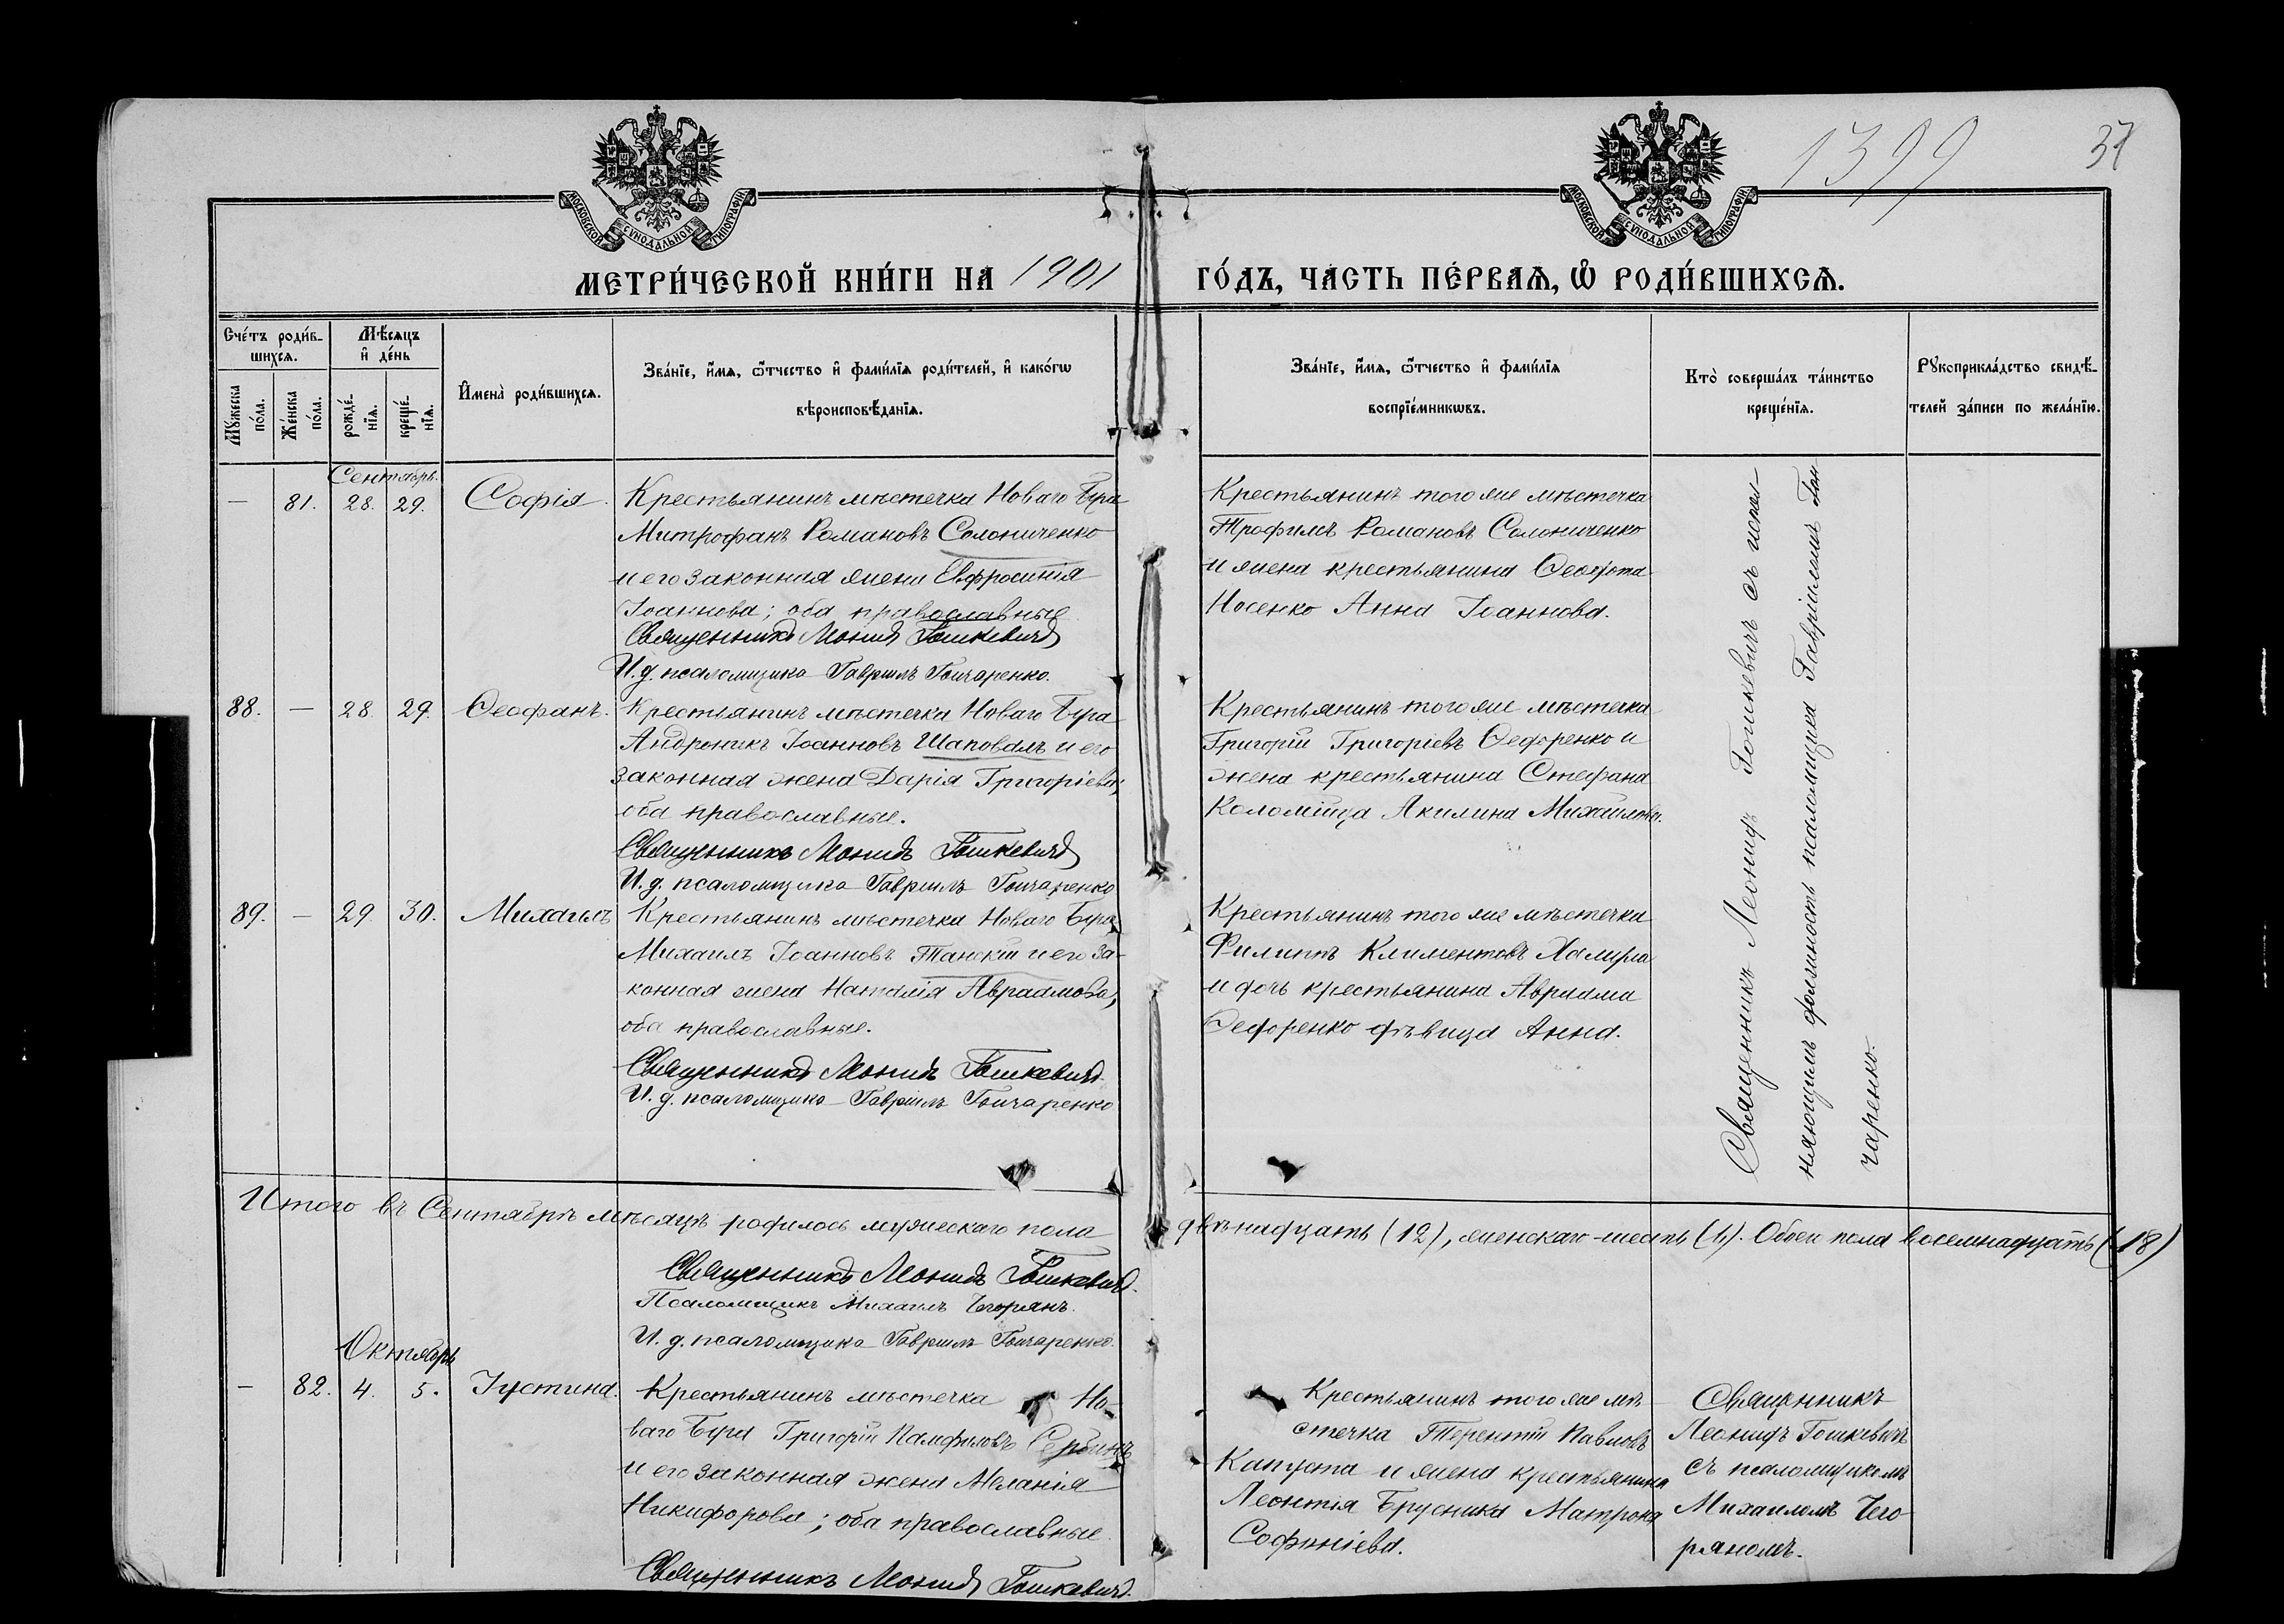 1399
37
МОСКОВСКОЙ СѴНОДАЛЬНОЙ ТИПОГРАФІИ
МОСКОВСКОЙ СѴНОДАЛЬНОЙ ТИПОГРАФІИ
МЕТРИ́ЧЕСКОЙ КНИ́ГИ НА 1901 ГО́ДЪ, ЧА́СТЬ ПЕ́РВАѦ, Ѡ҆ РОДИ́ВШИХСѦ.
Сче́тъ роди́в-
шихсѧ.
Мꙋ́жеска по́ла.
Же́нска по́ла.
Мѣ́сѧцъ
и҆ де́нь
рожде́-
нїѧ.
креще́-
нїѧ.
И҆мена̀ роди́вшихсѧ.
Зва́нїе, и҆́мѧ, ѻ҆́тчество и҆ фами́лїѧ роди́телей, и҆ како́гѡ
вѣроисповѣ́данїѧ.
Зва́нїе, и҆́мѧ, ѻ҆́тчество и҆ фами́лїѧ
воспрїе́мникѡвъ.
Кто̀ соверша́лъ та́инство
креще́нїѧ.
Рꙋкоприкла́дство свидѣ́-
телей за́писи по жела́нїю.
Сентябрь.
— 81. 28. 29. Софія.
Крестьянинъ мѣстечка Новаго Буга
Митрофанъ Романовъ Солониченко
и его законная жена Евфросинія
Іоаннова; оба православные
Священникъ Леонидъ Гошкевичъ
И. д. псаломщика Гавріилъ Гончаренко.
Крестьянинъ того же мѣстечка
Трофимъ Романовъ Солониченко
и жена крестьянина Ѳеодота
Носенко Анна Іоаннова.
88. — 28. 29. Ѳеофанъ.
Крестьянинъ мѣстечка Новаго Буга
Андроникъ Іоанновъ Шаповалъ и его
законная жена Дарія Григоріева;
оба православные.
Священникъ Леонидъ Гошкевичъ
И. д. псаломщика Гавріилъ Гончаренко
Крестьянинъ того же мѣстечка
Григорій Григоріевъ Ѳедоренко и
жена крестьянина Стефана
Коломійца Акилина Михайлова.
89. — 29. 30. Михаилъ
Крестьянинъ мѣстечка Новаго Буга
Михаилъ Іоанновъ Танскій и его за-
конная жена Наталія Авраамова;
оба православные.
Священникъ Леонидъ Гошкевичъ.
И. д. псаломщика Гавріилъ Гончаренко
Крестьянинъ того же мѣстечка
Филиппъ Климентовъ
и дочь крестьянина Авраама
Ѳедоренко дѣвица Анна.
Священникъ Леонидъ Гошкевичъ съ испол-
няющимъ должность псаломщика Гавріиломъ Гон-
чаренко.
Итого въ Сентябрѣ мѣсяцѣ родилось мужескаго пола двѣнадцать (12), женскаго—шесть (6). Обоего пола восемнадцать (18)
Священникъ Леонидъ Гошкевичъ.
Псаломщикъ Михаилъ Чегорянъ.
И. д. псаломщика Гавріилъ Гончаренко.
Октябрь
— 82. 4. 5. Іустина.
Крестьянинъ мѣстечка Но-
ваго Буга Григорій Памфиловъ Сербинъ
и его законная жена Меланія
Никифорова; оба православные.
Священникъ Леонидъ Гошкевичъ.
Крестьянинъ того же мѣ-
стечка Терентій Павловъ
Капуста и жена крестьянина
Леонтія Брусника Матрона
Софоніева.
Священникъ
Леонидъ Гошкевичъ
съ псаломщикомъ
Михаиломъ Чего-
ряномъ.